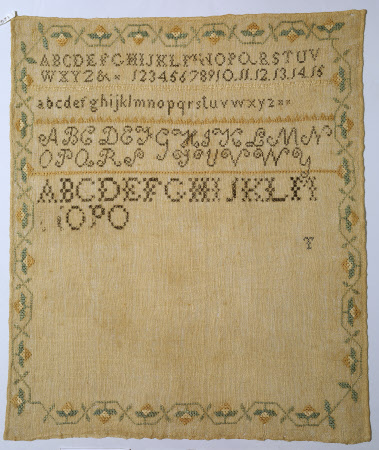 ABCDEFGHIJKLMNOPQRSTUV
WXYZ& 12345678910.11.12.13.14.15
abcdefghijklmnopqrstuvwxyz
ABCDEFGHIKLMN
OPQRSTUVWY
ABCDEFGHIJKLM
NOPQ
T